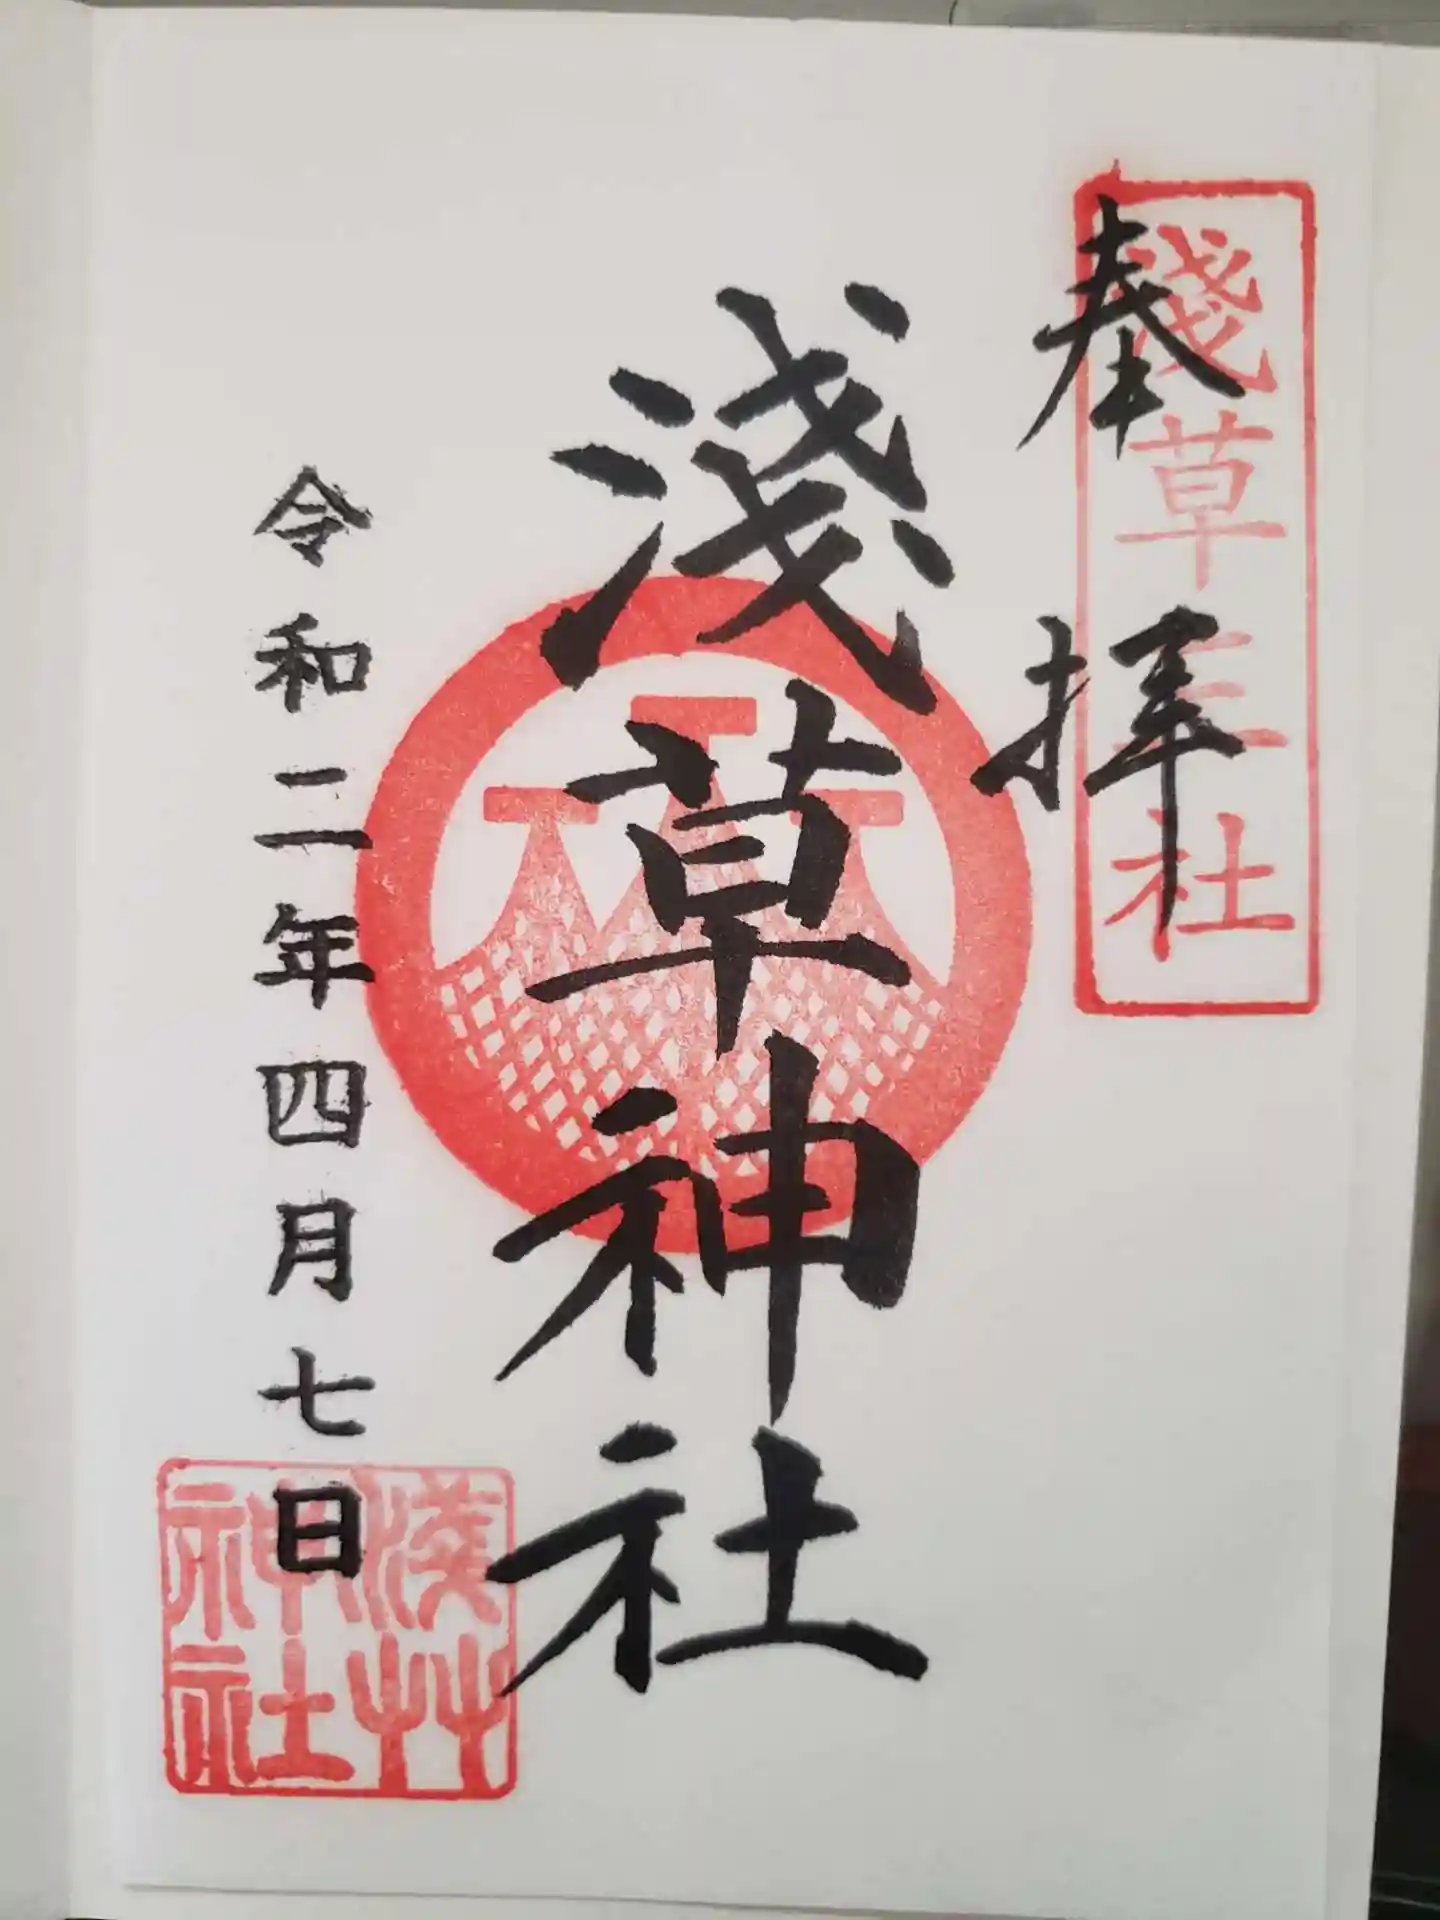 奉拝
淺草三社
淺草神社
令和二年四月七日
淺艸神社